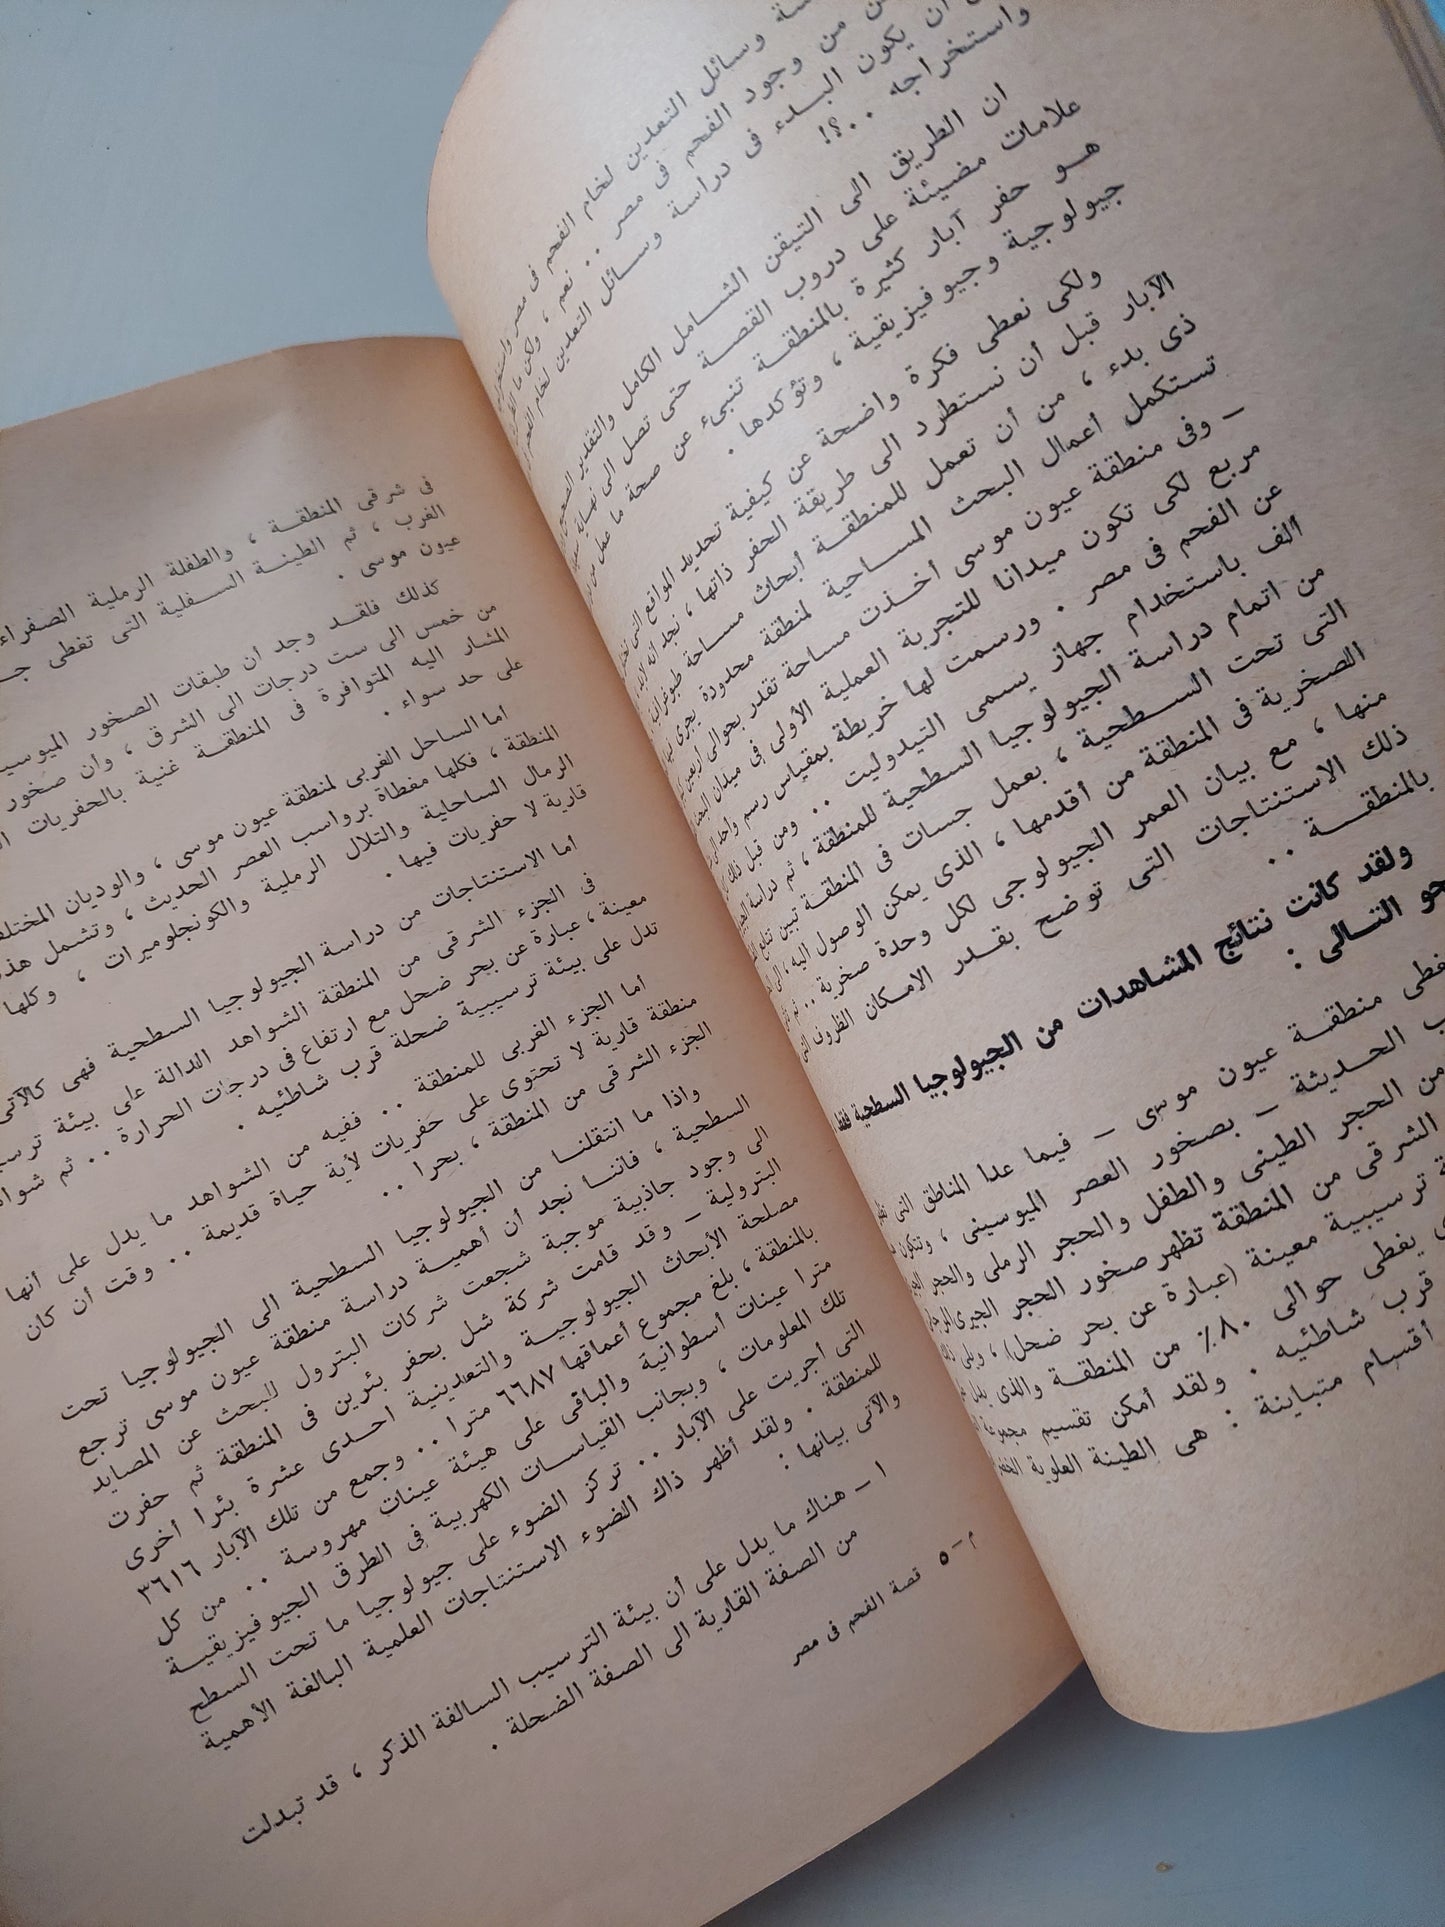 سة وسائل التعدين لخام الفحم فى مصر
من وجود الفحم فى مصر .. نعم ، ولكن
أن يكون البدء فى دراسة وسائل التعدين لخام
واستخراجه ..؟!
ان الطريق الى التيقن الشامل الكامل والتقدير الصحيح
علامات مضيئة على دروب القصة حتى تصل الى نهاية
هو حفر آبار كثيرة بالمنطقة تنبىء عن صحة ما
جيولوجية وجيوفيزيقية ، وتؤكدها .
ولكى نعطى فكرة واضحة عن كيفية تحديد المواقع التى
الآبار قبل أن نستطرد الى طريقة الحفر ذاتها ، نجد انه
ذى بدء ، من أن تعمل للمنطقة أبحاث مساحة
تستكمل أعمال البحث المساحية لمنطقة محدودة يجرى
– وفى منطقة عيون موسى أخذت مساحة تقدر بحوالى أربعين
مربع لكى تكون ميدانا للتجربة العملية الأولى فى ميدان
عن الفحم فى مصر . ورسمت لها خريطة بمقياس رسم
ألف باستخدام جهاز يسمى التيدوليت .. ومن قبل ذلك
من اتمام دراسة الجيولوجيا السطحية للمنطقة ، ثم دراسة
التى تحت السطحية ، بعمل جسات فى المنطقة تبين
الصخرية فى المنطقة من أقدمها ، الذى يمكن الوصول اليه ،
منها ، مع بيان العمر الجيولوجى لكل وحدة صخرية .. ثم
ذلك الاستنتاجات التى توضح بقدر الامكان الظروف التى
بالمنطقة ..
ولقد كانت نتائج المشاهدات من الجيولوجيا السطحية فقط
حو التالى :
منطقة عيون موسى – فيما عدا المناطق التى
الحديثة – بصخور العصر الميوسينى ، وتتكون
من الحجر الطينى والطفل والحجر الرملى والحجر
الشرقى من المنطقة تظهر صخور الحجر الجيرى
ترسيبية معينة (عبارة عن بحر ضحل) ،
يغطى حوالى ٨٠٪ من المنطقة والذى يدل
قرب شاطئيه . ولقد أمكن تقسيم مجموعة
أقسام متباينة : هى الطينة العلوية
فى شرقى المنطقة ، والطفلة الرملية الصفراء
الغرب ، ثم الطينة السفلية التى تغطى
عيون موسى .
كذلك فلقد وجد ان طبقات الصخور
من خمس الى ست درجات الى الشرق ، وان صخور
المشار اليه المتوافرة فى المنطقة غنية بالحفريات
على حد سواء .
اما الساحل الغربى لمنطقة عيون موسى ، والوديان
المنطقة ، فكلها مغطاة برواسب العصر الحديث ، وتشمل
الرمال الساحلية والتلال الرملية والكونجلوميرات ، وكلها
قارية لا حفريات فيها .
اما الاستنتاجات من دراسة الجيولوجيا السطحية فهى كالآتى
فى الجزء الشرقى من المنطقة الشواهد الدالة على بيئة
معينة ، عبارة عن بحر ضحل مع ارتفاع فى درجات الحرارة .. ثم
تدل على بيئة ترسيبية ضحلة قرب شاطئيه .
أما الجزء الغربى للمنطقة .. ففيه من الشواهد ما يدل على أنها
منطقة قارية لا تحتوى على حفريات لأية حياة قديمة .. وقت أن كان
الجزء الشرقى من المنطقة ، بحرا ..
واذا ما انتقلنا من الجيولوجيا السطحية الى الجيولوجيا تحت
السطحية ، فاننا نجد أن أهمية دراسة منطقة عيون موسى ترجع
الى وجود جاذبية موجبة شجعت شركات البترول للبحث عن المصايد
البترولية – وقد قامت شركة شل بحفر بئرين فى المنطقة ثم حفرت
مصلحة الأبحاث الجيولوجية والتعدينية احدى عشرة بئرا أخرى
بالمنطقة ، بلغ مجموع أعماقها ٦٦٨٧ مترا .. وجمع من تلك الآبار ٣٦١٦
مترا عينات أسطوانية والباقى على هيئة عينات مهروسة .. من كل
تلك المعلومات ، وبجانب القياسات الكهربية فى الطرق الجيوفيزيقية
التى اجريت على الآبار .. تركز الضوء على جيولوجيا ما تحت السطح
للمنطقة . ولقد أظهر ذاك الضوء الاستنتاجات العلمية البالغة الأهمية
والآتى بيانها :
١ – هناك ما يدل على أن بيئة الترسيب السالفة الذكر ، قد تبدلت
من الصفة القارية الى الصفة الضحلة .
م – ٥ قصة الفحم فى مصر